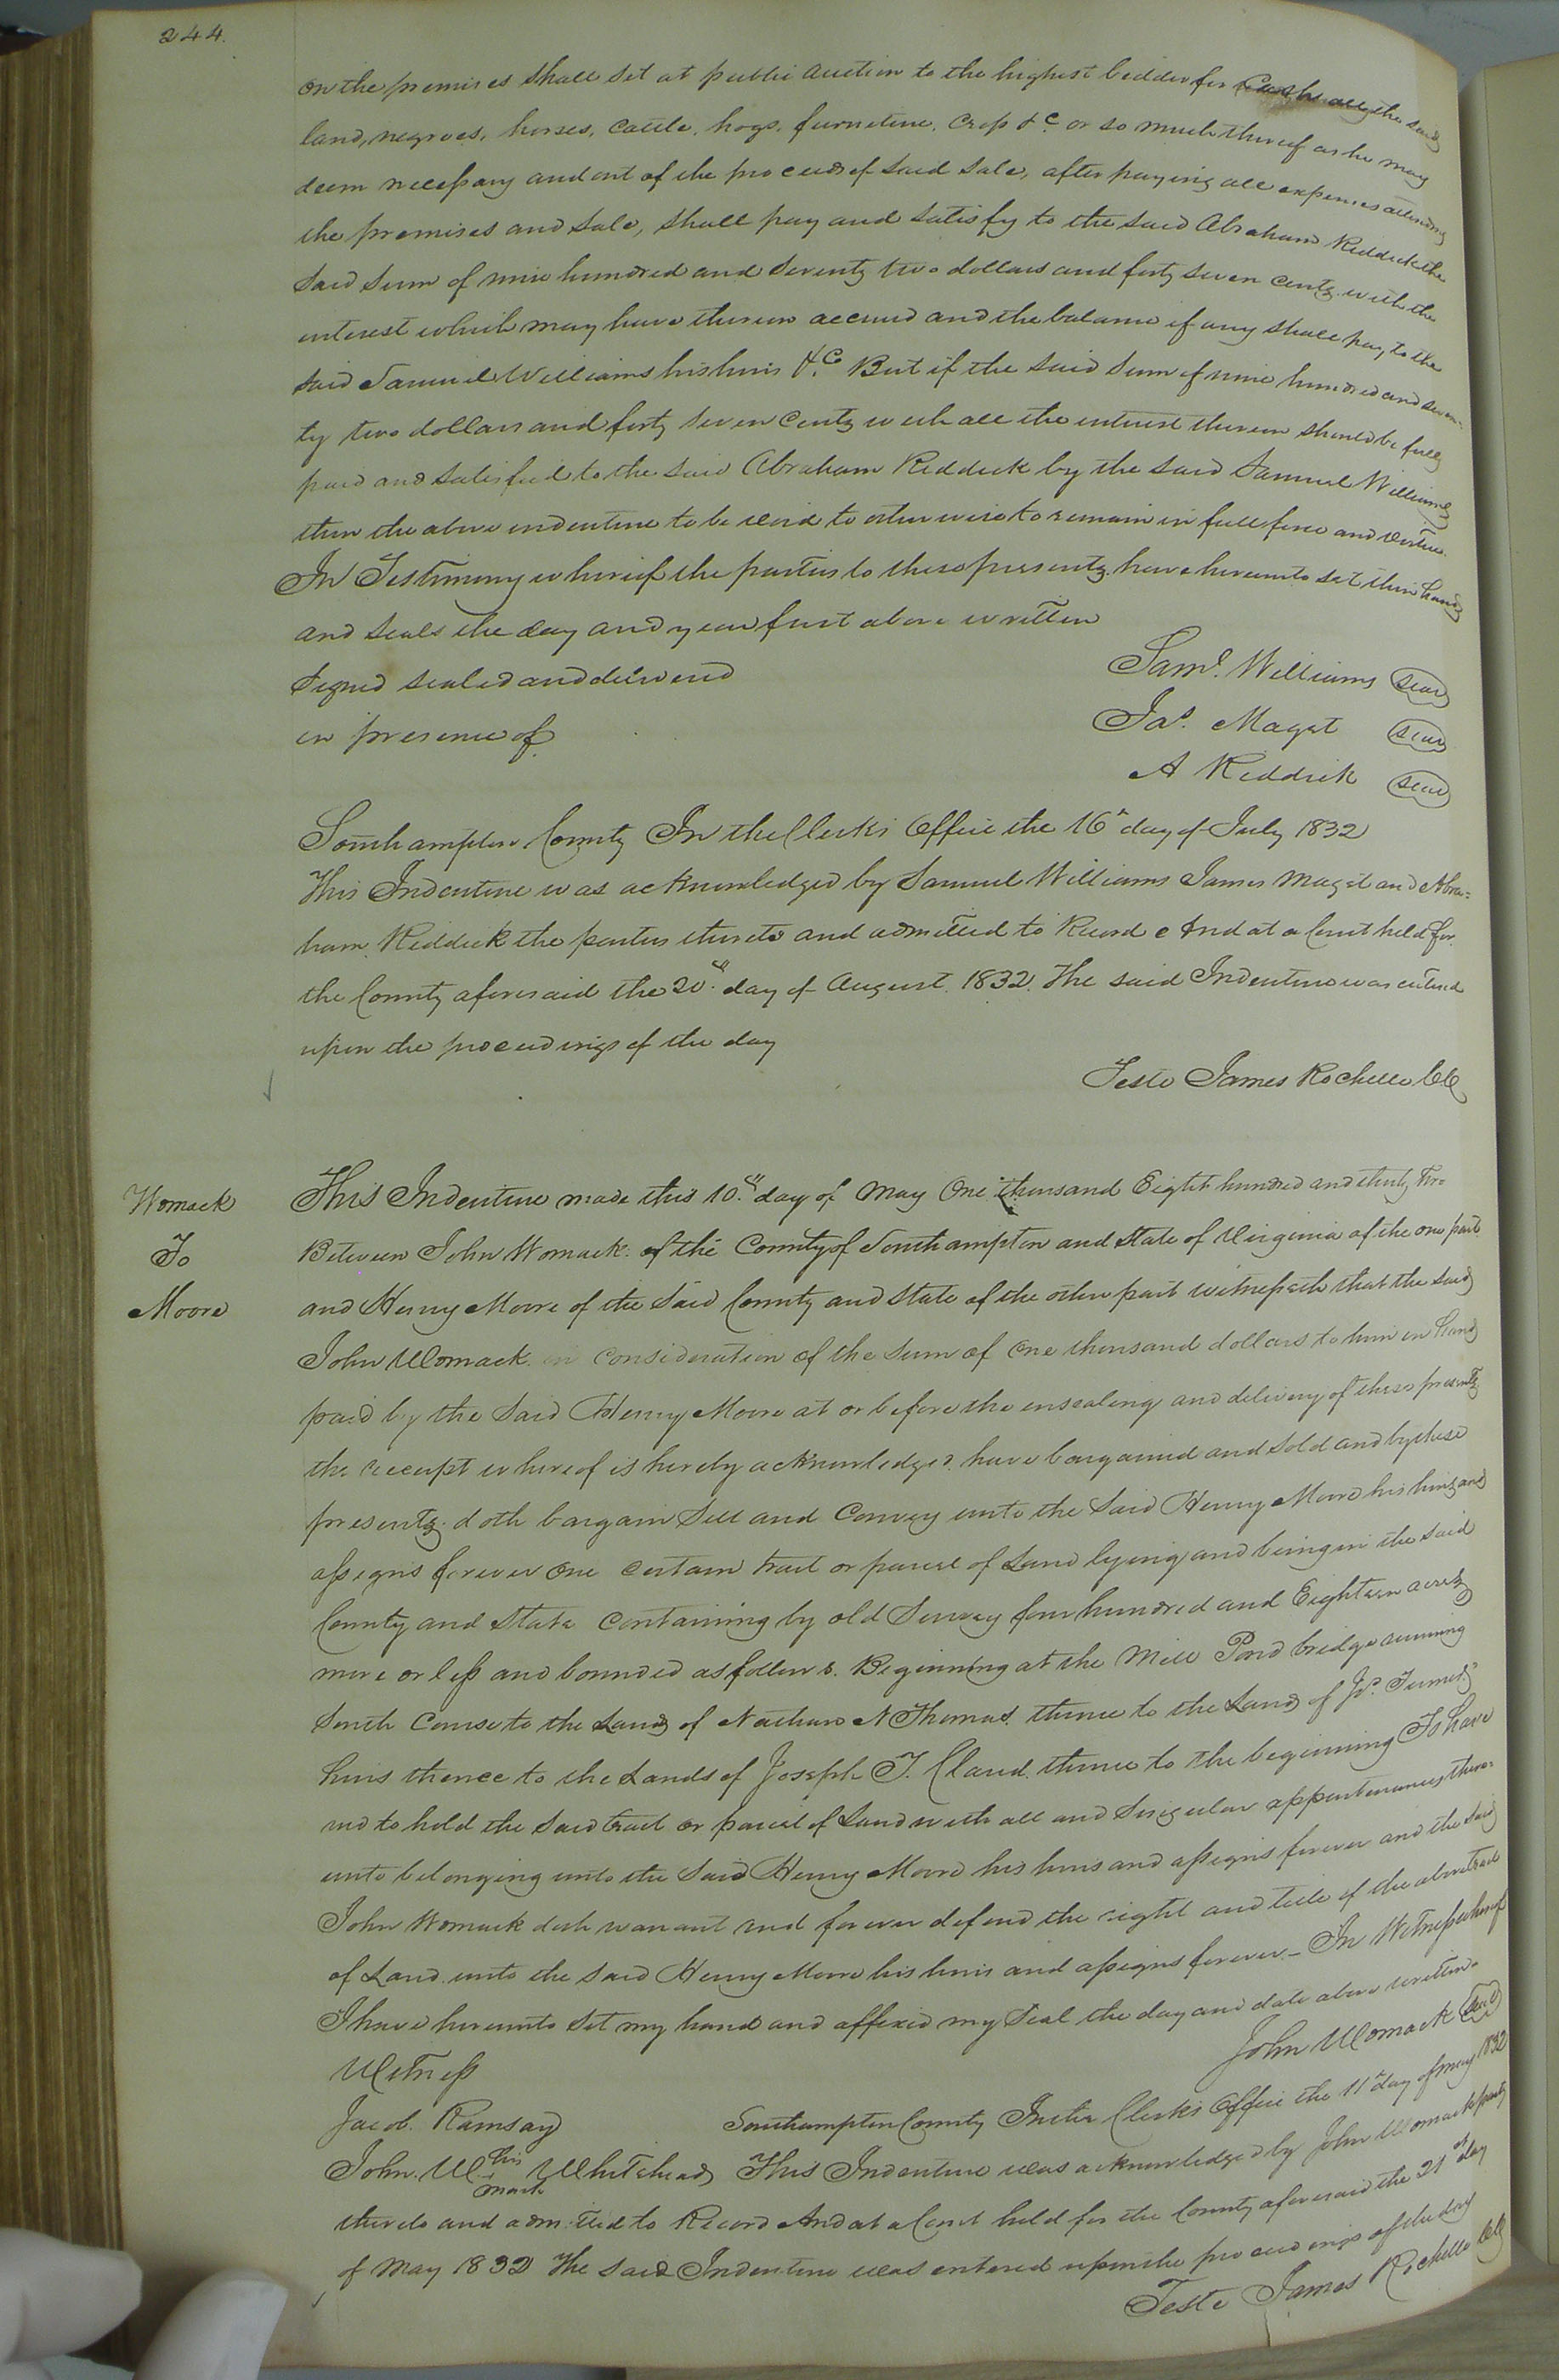 244.
on the premises shall set at public auction to the highest bidder for Cash all the said
land, negroes, horses, cattle, hogs, furneture, crop &c. or so much thereof as he may
deem necessary and out of the proceeds of said sale, after paying all expenses attending
the premises and sale, shall pay and satisfy to the said Abraham Riddick the
said sum of nine hundred and seventy two dollars and forty seven cents with the
interest which may have thereon accrued and the balance if any shall pay to the
said Samuel Williams his heirs &c. But if the said sum of nine hundred and seven-
ty two dollars and forty seven cents with all the interest thereon should be fully
paid and satisfied to the said Abraham Riddick by the said Samuel Williams
then the above indenture to be void to otherwise to remain in full force and virtue.
In Testimony whereof the parties to these presents have hereunto set their hands
and seals the day and year first above written
Signed sealed and delivered
in presence of
Saml. Williams seal
Jas. Maget seal
A Riddick seal
Southampton County In the Clerks Office the 16th day of July 1832
This Indenture was acknowledged by Samuel Williams James Maget and Abra=
ham Riddick the parties thereto and admitted to Record And at a Court held for
the County aforesaid the 20th day of August 1832. The said Indenture was entered
upon the proceedings of the day
Teste James Rochelle Clk
Womack
To
Moore
This Indenture made this 10th day of May One thousand Eight hundred and thirty two
Between John Womack of the County of Southampton and State of Virginia of the one part
and Henry Moore of the said County and State of the other part witnesseth that the said
John Womack in consideration of the sum of One thousand dollars to him in hand
paid by the said Henry Moore at or before the ensealing and delivery of these presents
the receipt whereof is hereby acknowledged have bargained and sold and by these
presents doth bargain sell and convey unto the said Henry Moore his heirs and
assigns forever one certain tract or parcel of Land lying and being in the said
County and State containing by old Survey four hundred and Eighteen acres
more or less and bounded as follows. Beginning at the Mill Pond bridge running
South Course to the Lands of Nathan N Thomas. thence to the Lands of Jo. Turner's
heirs thence to the Lands of Joseph T. Claud. thence to the beginning To have
and to hold the said tract or parcel of Land with all and singular appurtenances there=
unto belonging unto the said Henry Moore his heirs and assigns forever and the said
John Womack doth warrant and forever defend the right and title of the above tract
of Land unto the said Henry Moore his heirs and assigns forever_ In Witness whereof
I have hereunto set my hand and affixed my Seal the day and date above written.
John Womack seal
Witness
Jacob Ramsay
Southampton County In the Clerk's Office the 11th day of May 1832
John W his mark Whitehead This Indenture was acknowledged by John Womack party
thereto and admitted to Record And at a Court held for the County aforesaid the 21st day
of May 1832 The said Indenture was entered upon the proceedings of the day
Teste James Rochelle Clk